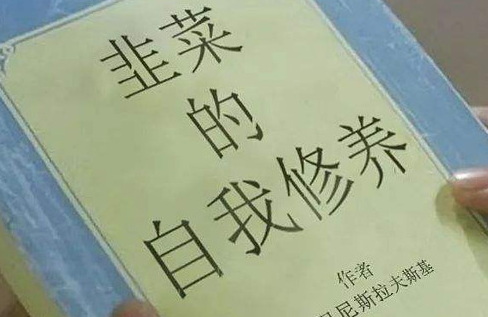 韭菜
的
自我修养
作者
尼斯拉夫斯基